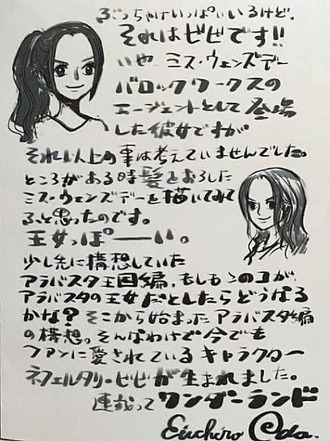 ぶっちゃけいっぱいいるけど、
それはビビです!!
いや、ミス・ウェンズデー
バロックワークスの
エージェントとして登場
した彼女ですが
それ以上の事は考えていませんでした。
ところがある時髪をおろした
ミス・ウェンズデーを描いてみて
ふと思ったのです。
王女っぽーーい。
少し先に構想していた
アラバスタ王国編、もしもこのコが、
アラバスタの王女だとしたらどうなる
かな?そこから始まったアラバスタ編
の構想。そんなわけで今でも
ファンに愛されているキャラクター
ネフェルタリ・ビビが生まれました。
連載ってワンダーランド
Eiichiro Oda.